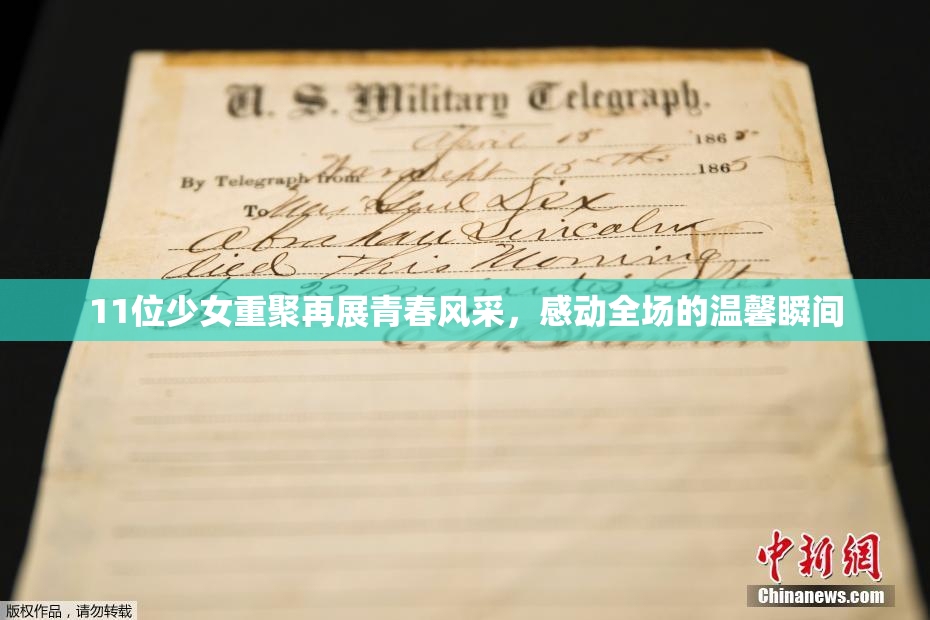 U. S. Military Telegraph.
April 15 1865
By Telegraph from War Dept 15th 1865
To Maj Genl Dix
Abraham Lincoln
died This Morning
at 22 minutes after
11位少女重聚再展青春风采，感动全场的温馨瞬间
E. M. Stanton
中新网
Chinanews.com
版权作品，请勿转载